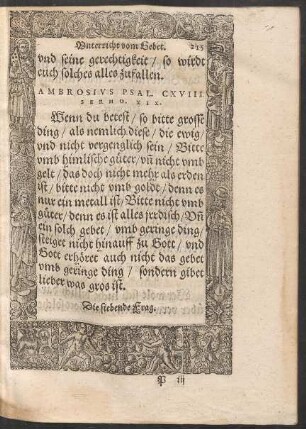 Vnterricht vom Gebet. 215
vnd seine gerechtigkeit / so wirdt
euch solches alles zufallen.
AMBROSIVS PSAL. CXVIII
SERMO. XIX.
Wenn du betest / so bitte grosse
ding / als nemlich diese / die ewig
vnd nicht vergenglich sein / Bitte
vmb himlische güter / vñ nicht vmb
gelt / das doch nicht mehr als erden
ist / bitte nicht vmb goldt / denn es
nur ein metall ist / Bitte nicht vmb
güter / denn es ist alles jrdisch / Vñ
ein solch gebet / vmb geringe ding /
steiget nicht hinauff zu Gott / vnd
Gott erhöret auch nicht das gebet
vmb geringe ding / sondern gibet
lieber was gros ist.
Die siebende Frag.
P iij